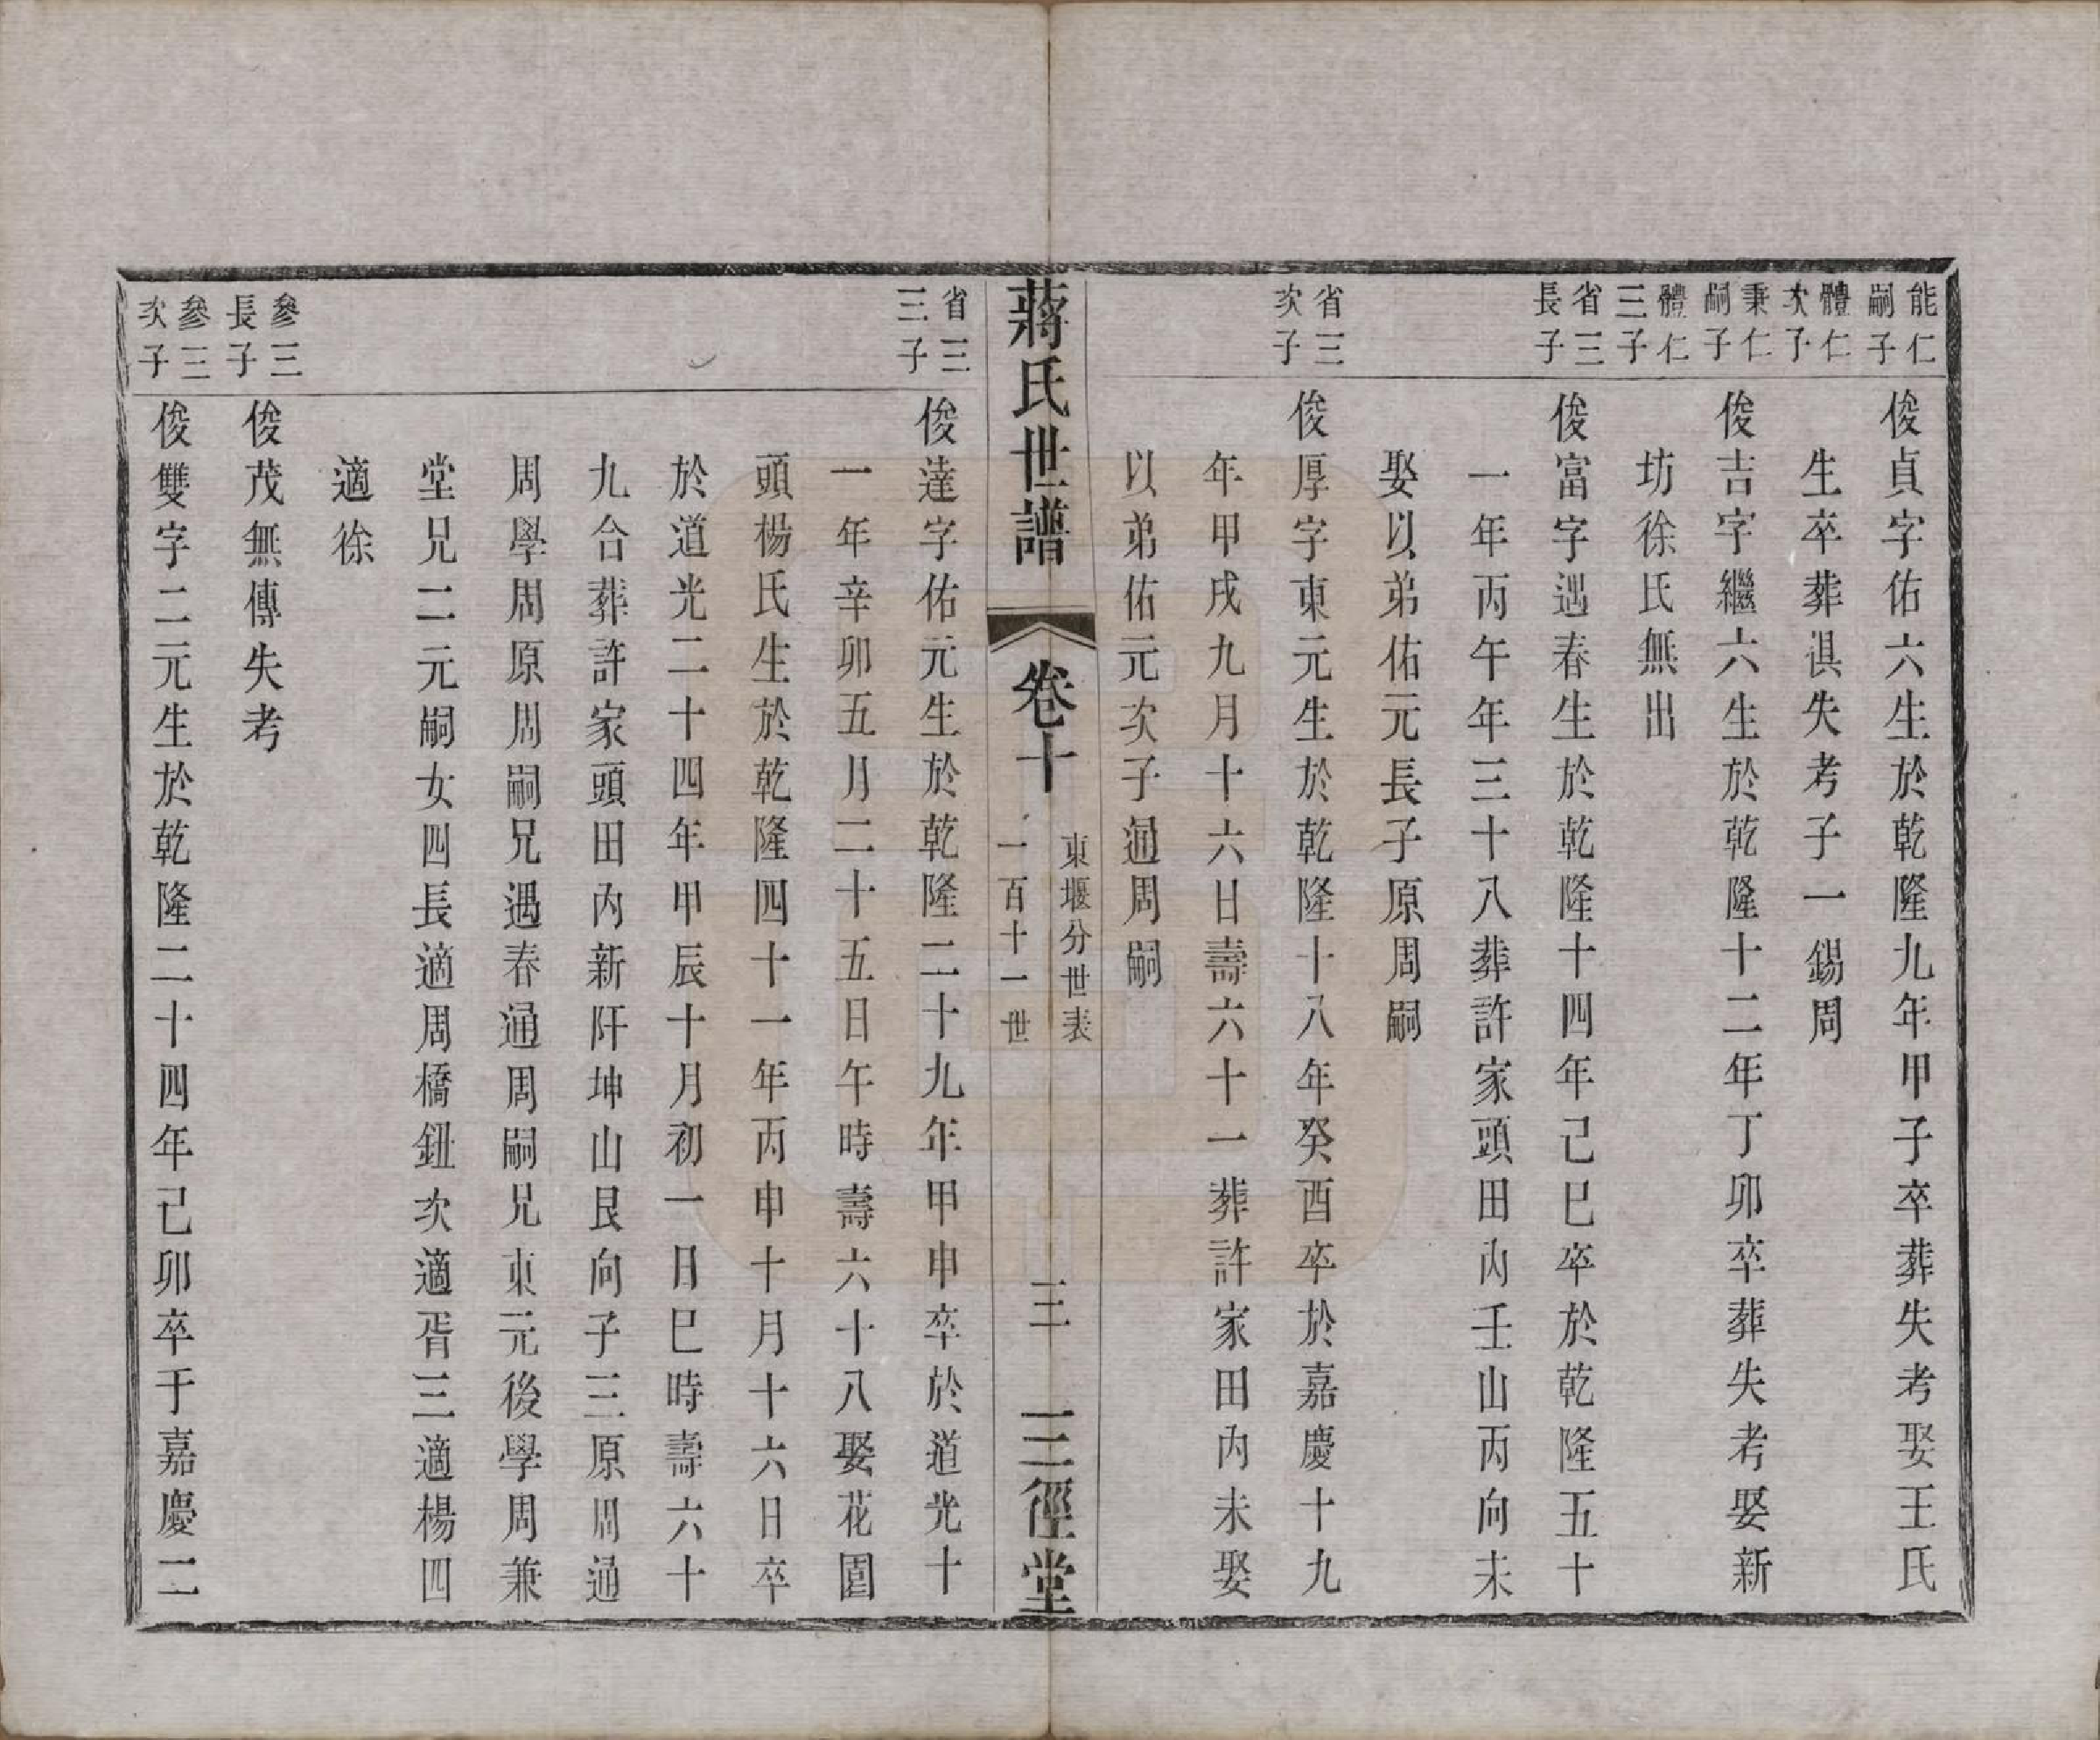 能仁
嗣子
俊貞字佑六生於乾隆九年甲子卒葬失考娶王氏
體仁
次子
生卒葬俱失考子一錫周
秉仁
嗣子
俊吉字繼六生於乾隆十二年丁卯卒葬失考娶新
體仁
三子
坊徐氏無出
省三
長子
俊富字遇春生於乾隆十四年己巳卒於乾隆五十
一年丙午年三十八葬許家頭田內壬山丙向未
娶以弟佑元長子原周嗣
省三
次子
俊厚字東元生於乾隆十八年癸酉卒於嘉慶十九
年甲戌九月十六日壽六十一葬許家田內未娶
以弟佑元次子通周嗣
蔣氏世譜
卷十
東堰分世表
一百十一世
三
三徑堂
省三
三子
俊達字佑元生於乾隆二十九年甲申卒於道光十
一年辛卯五月二十五日午時壽六十八娶花園
頭楊氏生於乾隆四十一年丙申十月十六日卒
於道光二十四年甲辰十月初一日巳時壽六十
九合葬許家頭田內新阡坤山艮向子三原周通
周學周原周嗣兄遇春通周嗣兄東元後學周兼
堂兄二元嗣女四長適周橋鈕次適胥三適楊四
適徐
參三
長子
俊茂無傳失考
參三
次子
俊雙字二元生於乾隆二十四年己卯卒于嘉慶二